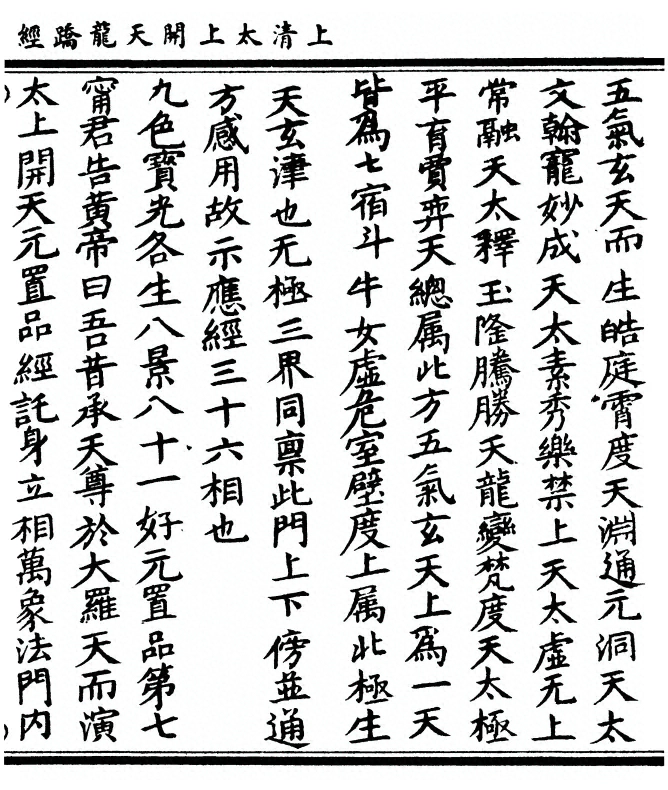 上清太上開天龍蹻經
五氣玄天而生皓庭霄度天淵通元洞天太
文翰寵妙成天太素秀樂禁上天太虛无上
常融天太釋玉隆騰勝天龍變梵度天太極
平育賈弈天總属此方五氣玄天上爲一天
皆爲七宿斗牛女虛危室壁度上属北極生
天玄津也无極三界同稟此門上下傍並通
方感用故示應經三十六相也
九色寶光各生八景八十一好元置品第七
甯君告黄帝曰吾昔承天尊於大羅天而演
太上開天元置品經託身立相萬象法門内